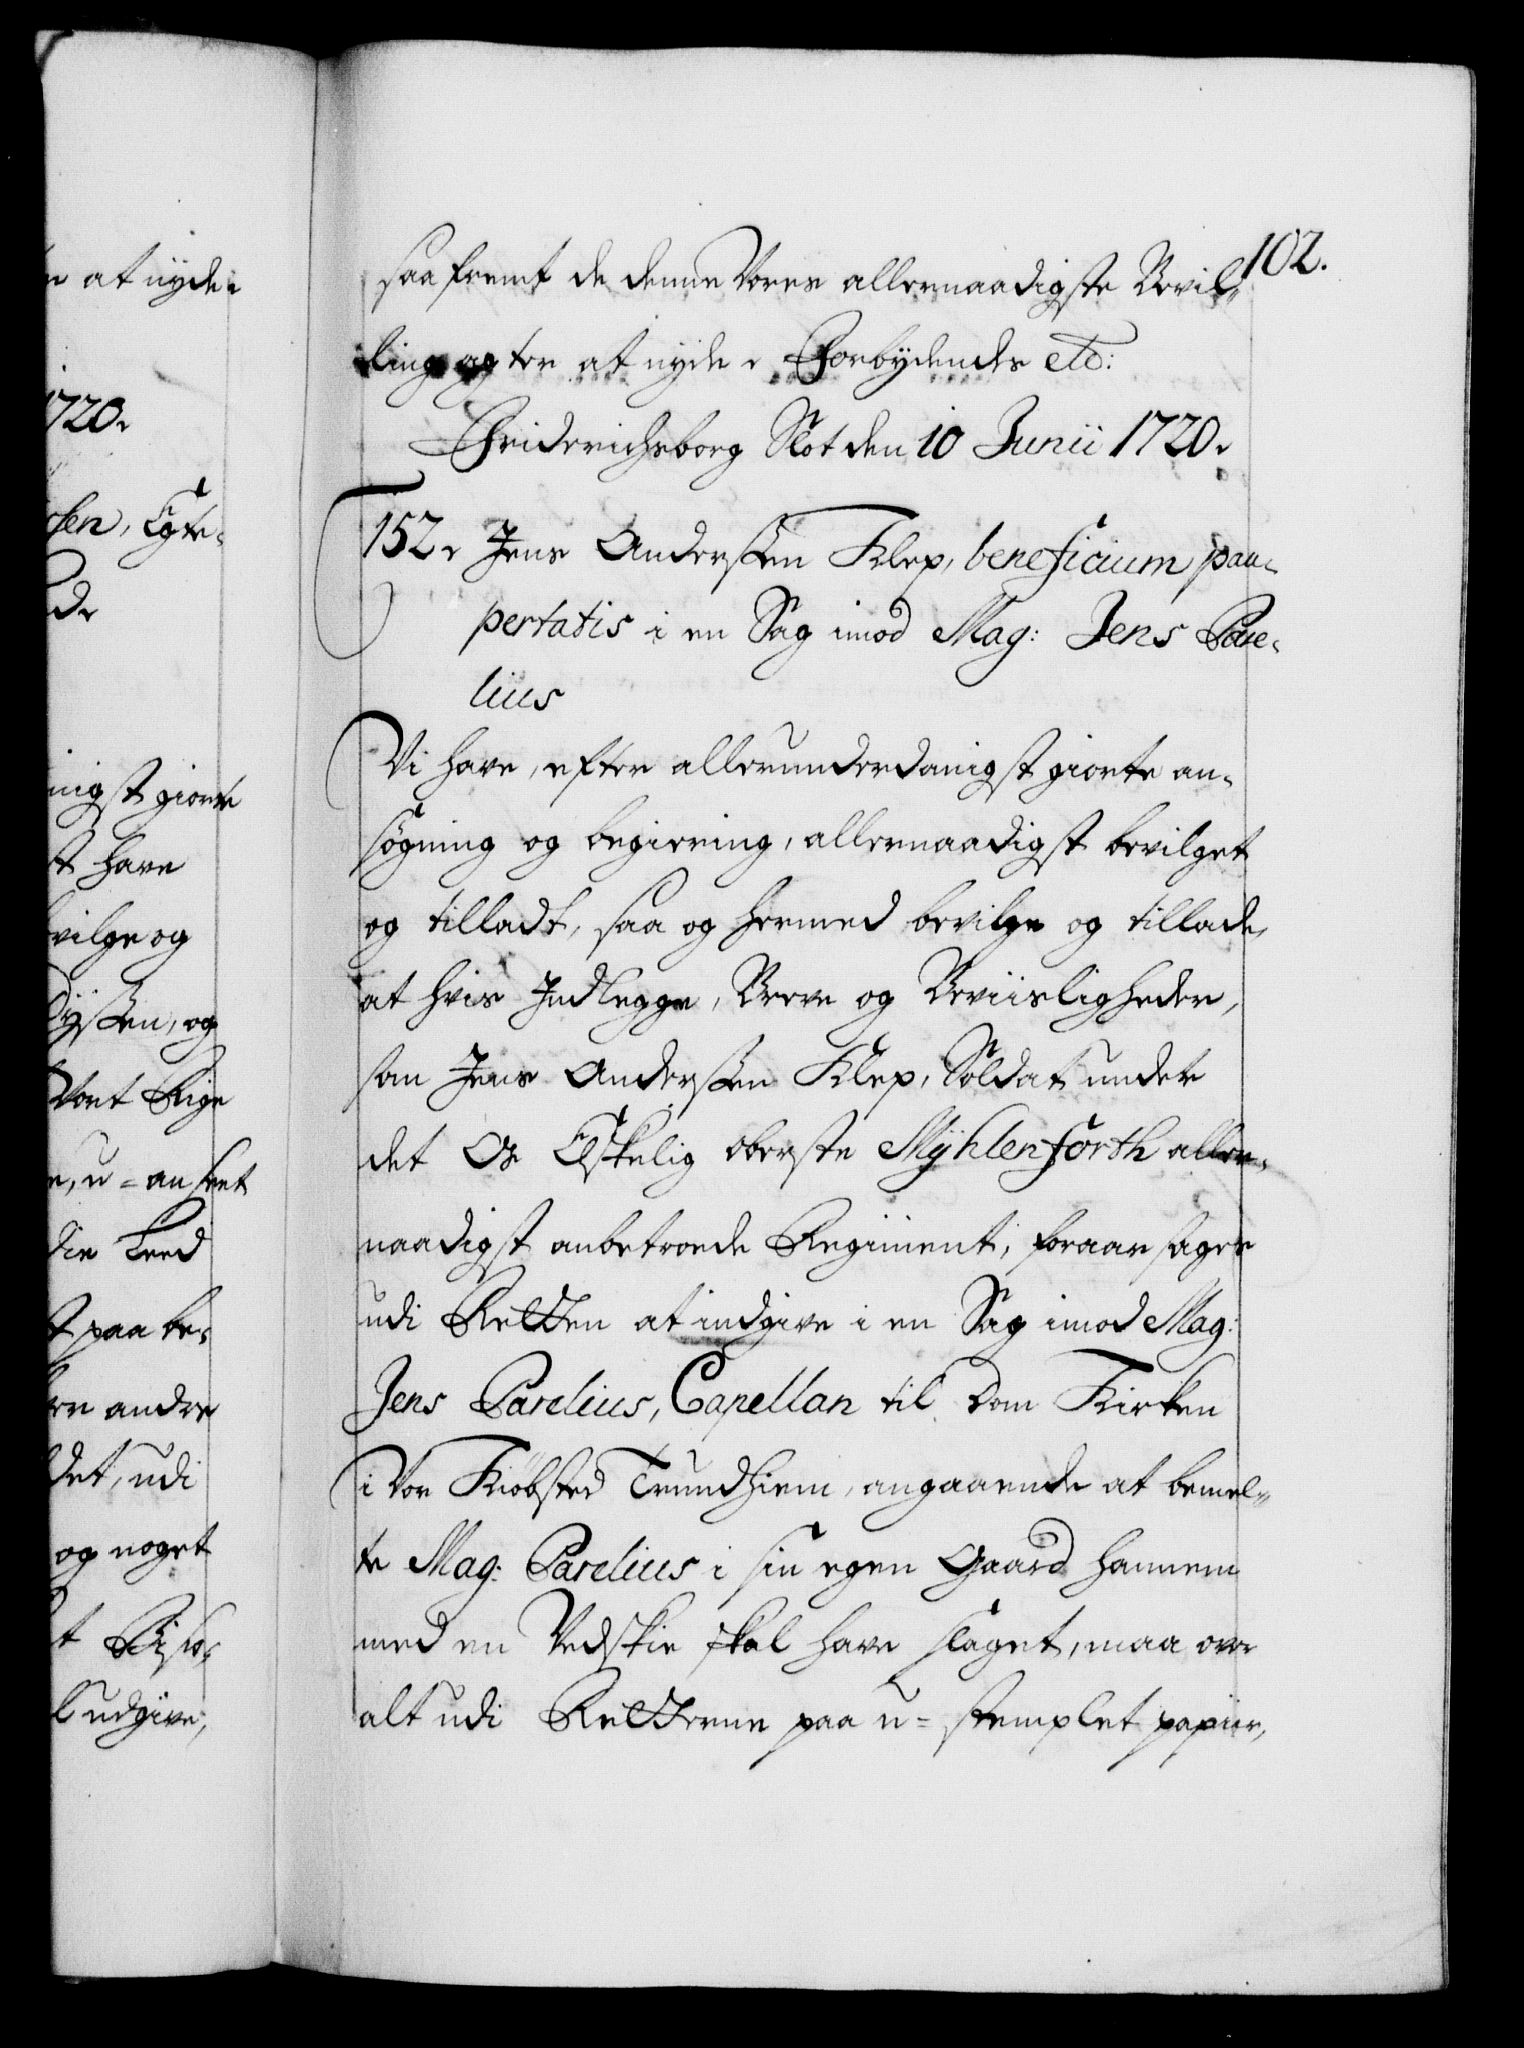 n at nyde.
1720.
sen, Egte-
nigst giorte
st have
vilge og
og
Vort Rige
e, u-anseet
Sted
t paa be-
andre
det, udi
og noget
t
l udgive,
102.
saafremt de denne Vores allernaadigste Bevil-
ling agter at nyde. Forbydendes etc:
Friderichsborg Slot den 10 Junii 1720.
152. Jens Anderssen Klep, beneficium pau-
pertatis i en Sag imod Mag: Jens Pare-
lius
Vi have, efter allerunderdanigst giorte an-
søgning og begiering, allernaadigst bevilget
og tilladt, saa og hermed bevilge og tillade,
at hvis Indlegge, Breve og Beviisligheder,
som Jens Anderssen Klep, Soldat under
det Os Elskelig Oberste Mÿhlenforth aller-
naadigst anbetroede Regiment, foraarsages
udi Retten at indgive i en Sag imod Mag:
Jens Parelius, Capellan til Dom Kirken
i Vor Kiøbsted Trundhiem, angaaende at bemel-
te Mag: Parelius i sin egen Gaard hannem
med en Vedskie skal have slaget, maa over
alt udi Retterne paa u-stemplet papiir,